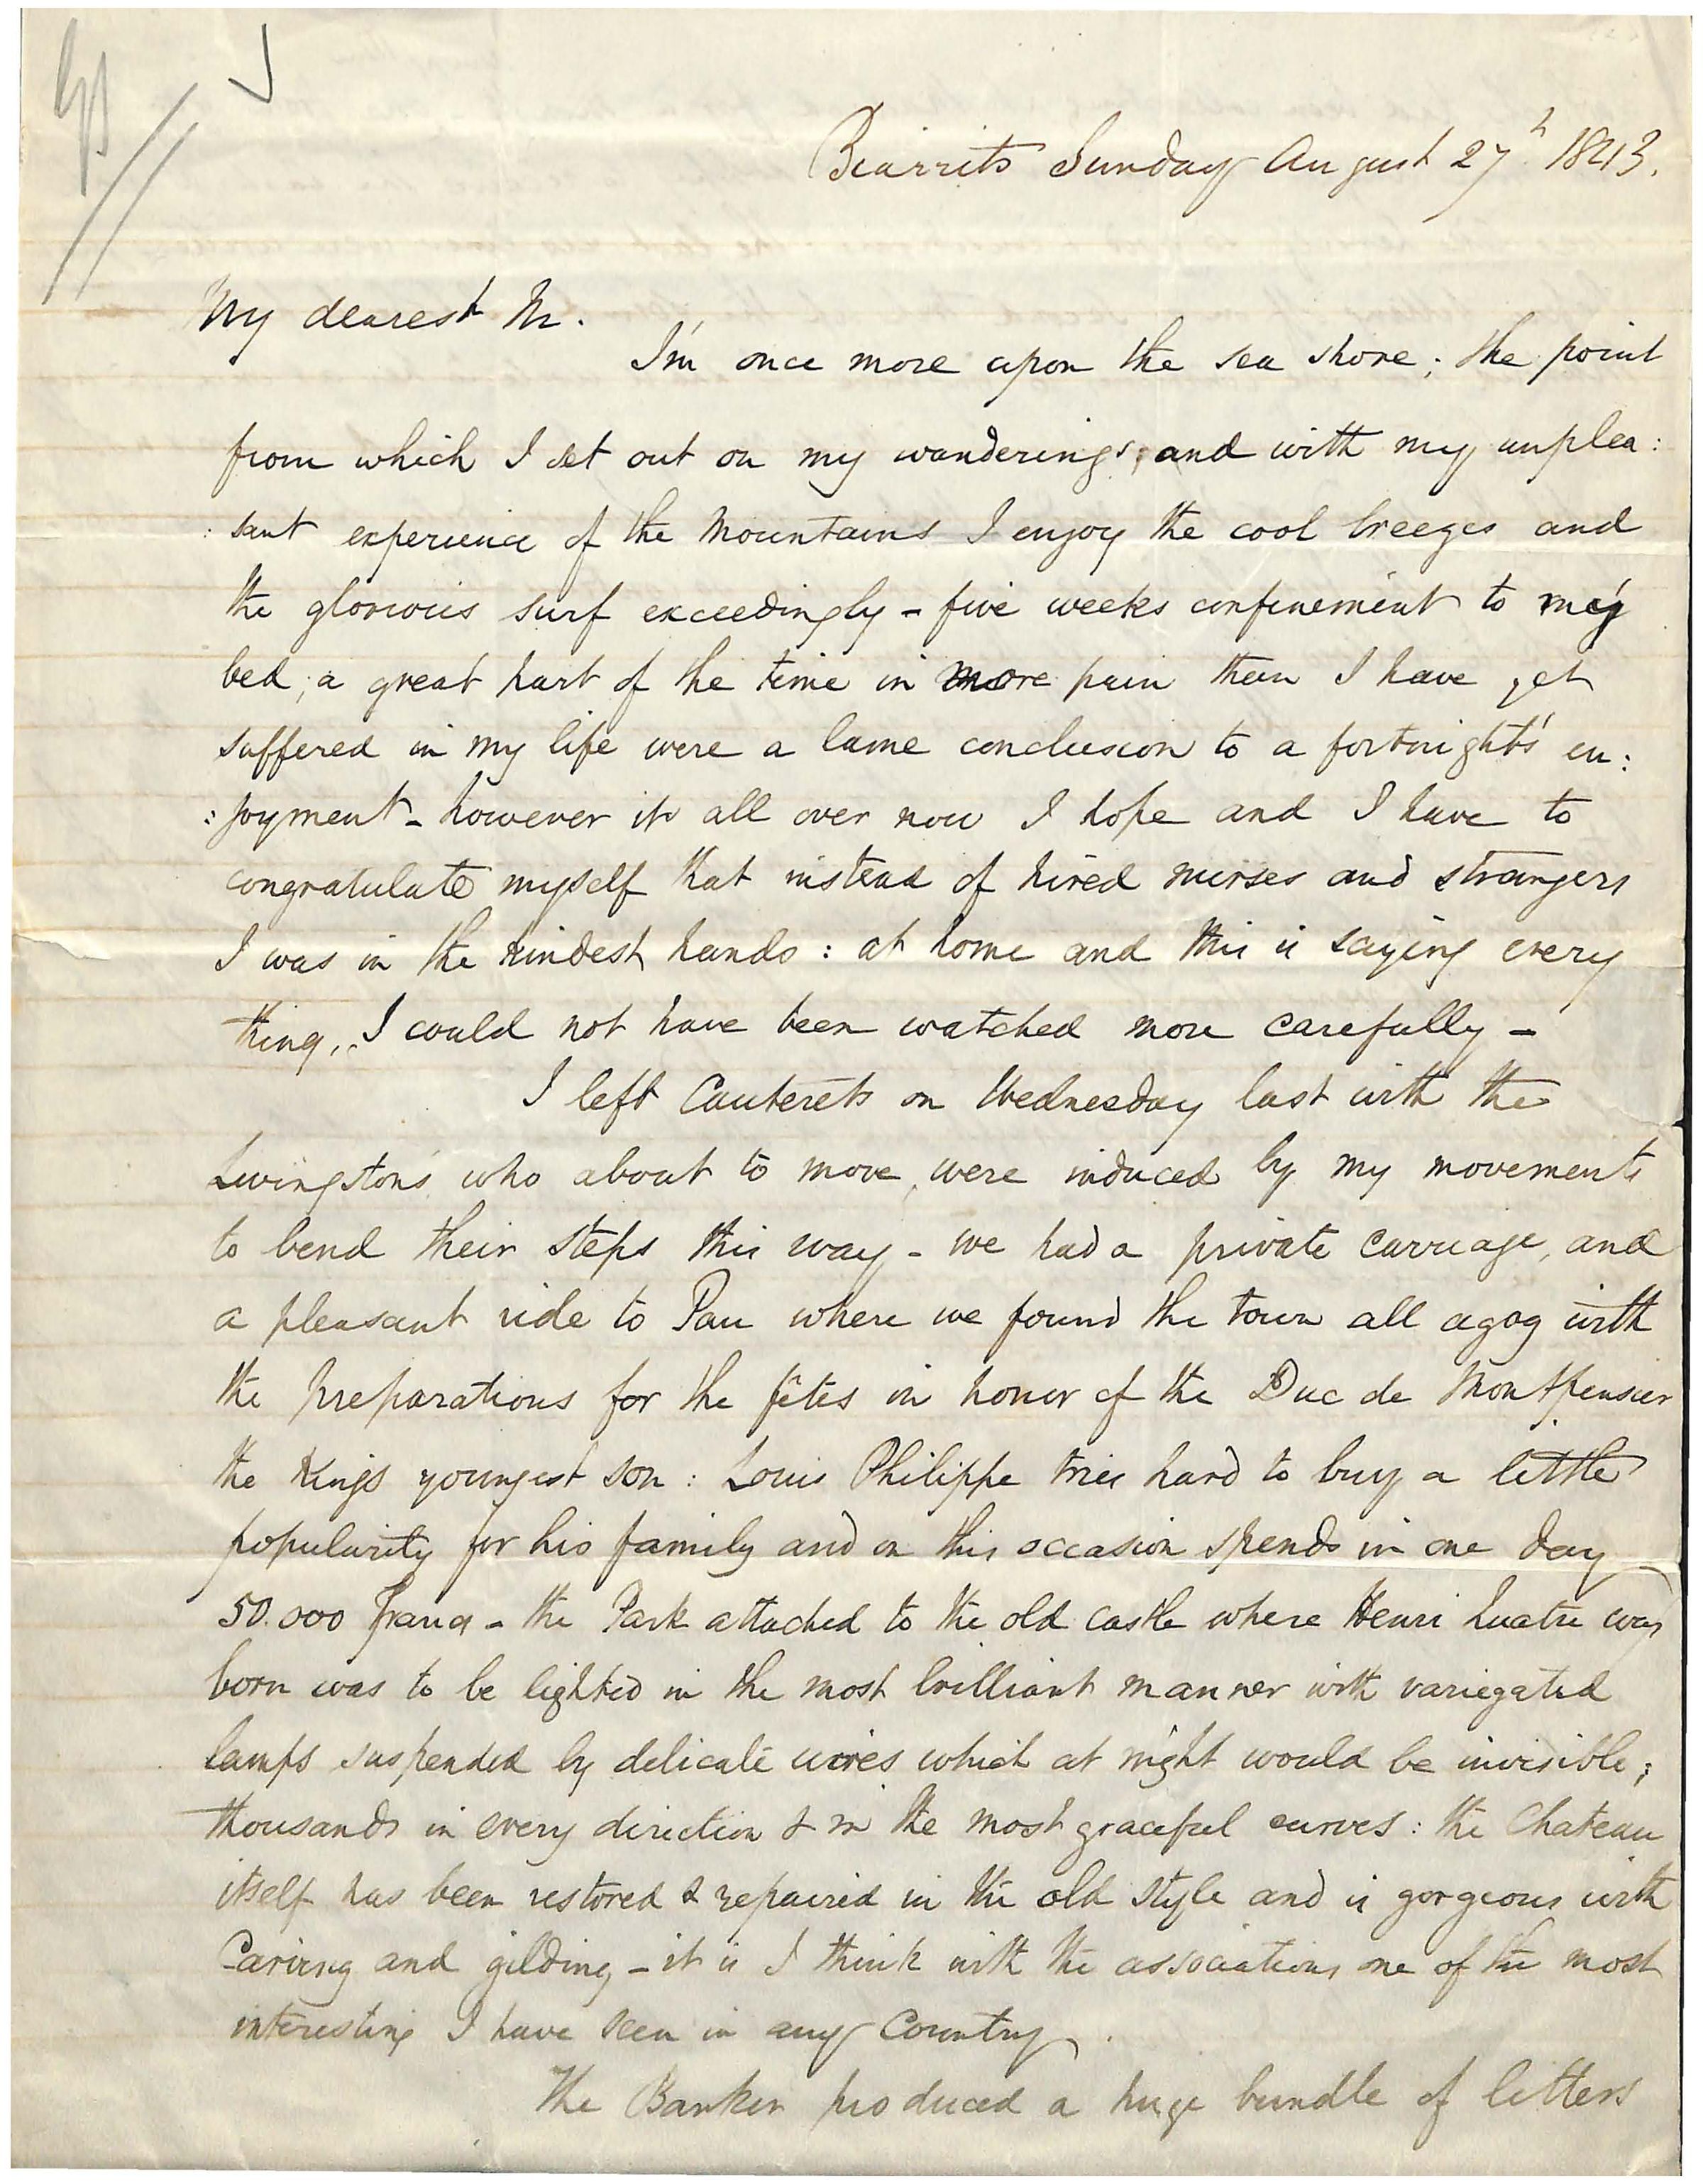 Biarrits Sunday August 27th 1843.
My dearest M.
I'm once more upon the sea shore; the point
from which I set out on my wanderings, and with my unplea:
:sant experience of the Mountains I enjoy the cool breezes and
the glorious surf exceedingly - five weeks confinement to my
bed, a great part of the time in more pain than I have yet
suffered in my life were a lame conclusion to a fortnight's en:
:joyment - however its all over now I hope and I have to
congratulate myself that instead of hired nurses and strangers
I was in the kindest hands: at home and this is saying every
thing, I could not have been watched more carefully -
I left Cauterets on Wednesday last with the
Livingstons who about to move, were induced by my movements
to bend their steps this way - we had a private carriage, and
a pleasant ride to Pau where we found the town all agog with
the preparations for the fêtes in honor of the Duc de Montpensier
the Kings youngest son: Louis Philippe tries hard to buy a little
popularity for his family and on this occasion spends in one day
50.000 Francs - the Park attached to the old castle where Henri Quatre was
born was to be lighted in the most brilliant manner with variegated
lamps suspended by delicate wires which at night would be invisible;
thousands in every direction & in the most graceful curves: the Chateau
itself has been restored & repaired in the old style and is gorgeous with
Carving and gilding - it is I think with the associations one of the most
interesting I have seen in any Country.
The Banker produced a huge bundle of letters